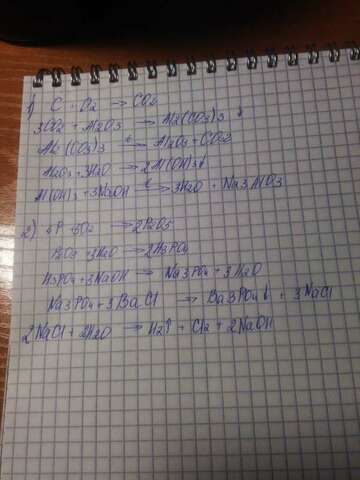 1) C + O2 → CO2
3CO2 + Al2O3 → Al2(CO3)3 ↓
Al2(CO3)3 →t Al2O3 + CO2
Al2O3 + 3H2O → 2Al(OH)3↓
Al(OH)3 + 3NaOH →t 3H2O + Na3AlO3
2) 4P + 5O2 → 2P2O5
P2O5 + 3H2O → 2H3PO4
H3PO4 + 3NaOH → Na3PO4 + 3H2O
Na3PO4 + 3BaCl → Ba3PO4↓ + 3NaCl
2NaCl + 2H2O → H2↑ + Cl2 + 2NaOH